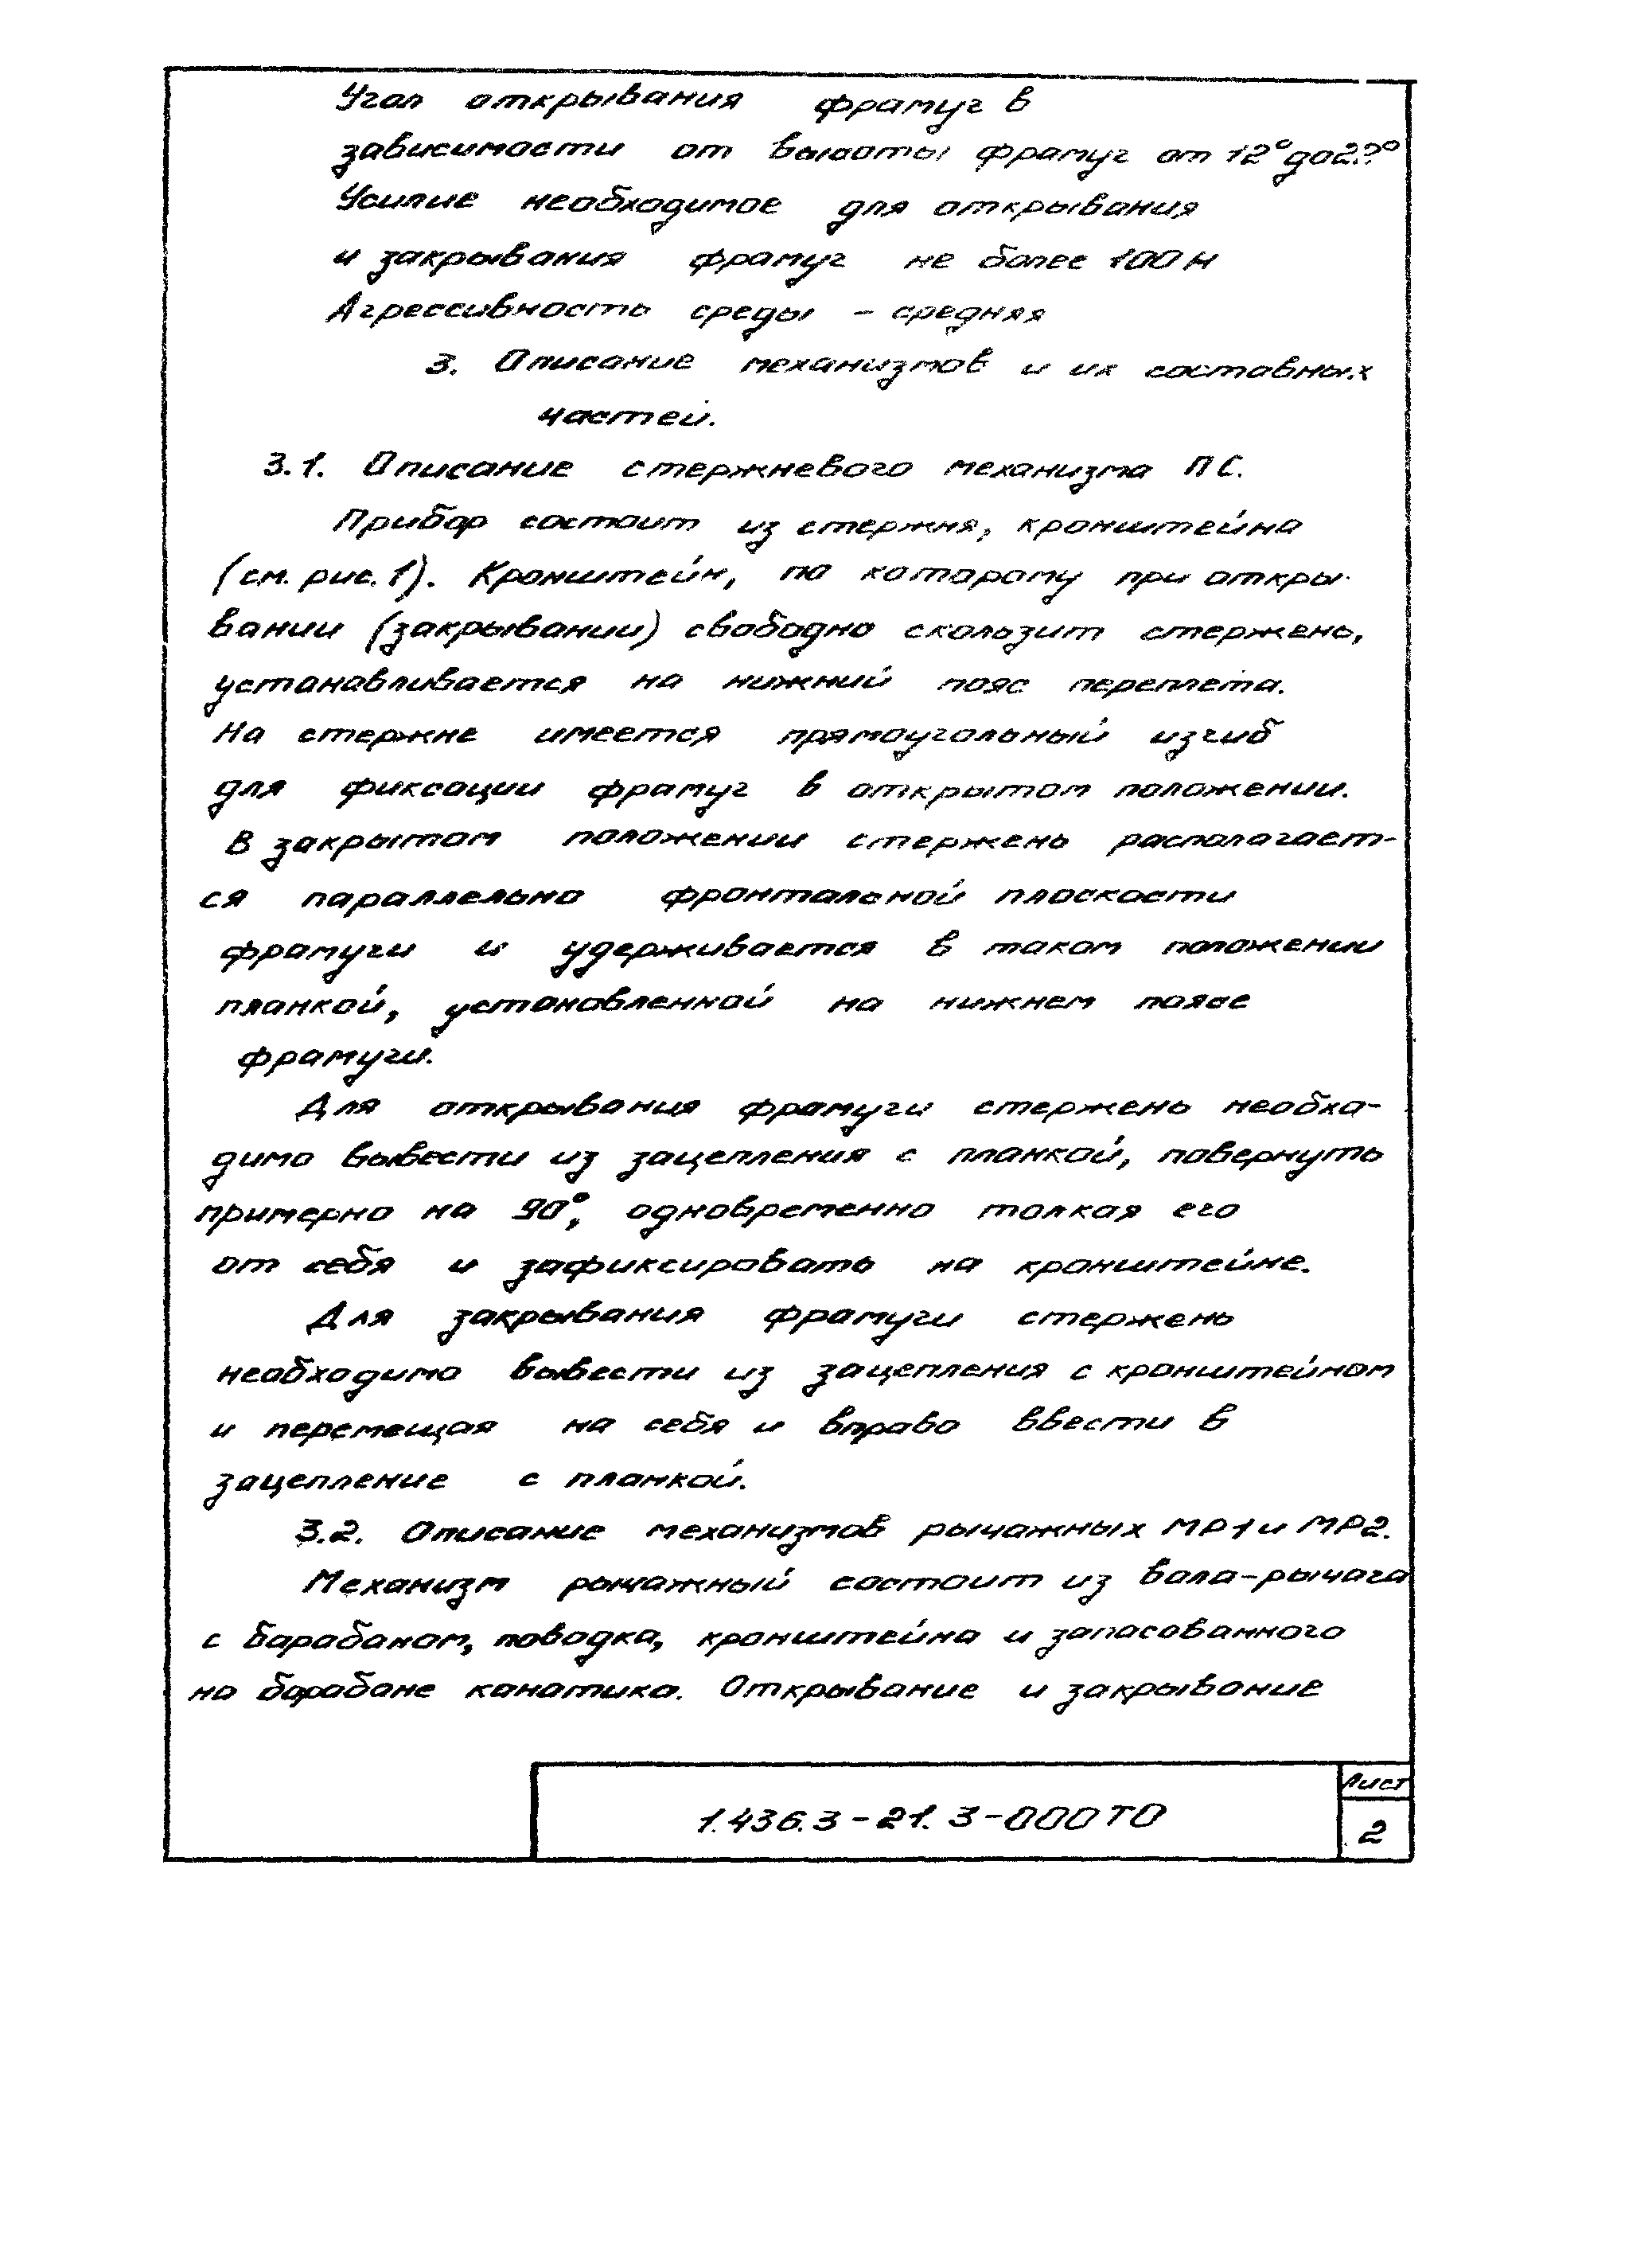 Угол открывания фрамуг в
зависимости от высоты фрамуг от 12° до
Усилие необходимое для открывания
и закрывания фрамуг не более 100 Н
Агрессивность среды – средняя
3. Описание механизмов и их составных
частей.
3.1. Описание стержневого механизма ПС.
Прибор состоит из стержня, кронштейна
(см. рис. 1). Кронштейн, по которому при откры-
вании (закрывании) свободно скользит стержень,
устанавливается на нижний пояс переплета.
На стержне имеется прямоугольный изгиб
для фиксации фрамуг в открытом положении.
В закрытом положении стержень располагает-
ся параллельно фронтальной плоскости
фрамуги и удерживается в таком положении
планкой, установленной на нижнем поясе
фрамуги.
Для открывания фрамуги стержень необхо-
димо вывести из зацепления с планкой, повернуть
примерно на 90°, одновременно толкая его
от себя и зафиксировать на кронштейне.
Для закрывания фрамуги стержень
необходимо вывести из зацепления с кронштейном
и перемещая на себя и вправо ввести в
зацепление с планкой.
3.2. Описание механизмов рычажных МР1 и МР2.
Механизм рычажный состоит из вала-рычага
с барабаном, поводка, кронштейна и запасованного
на барабане канатика. Открывание и закрывание
1.436.3-21.3-000 ТО
Лист
2